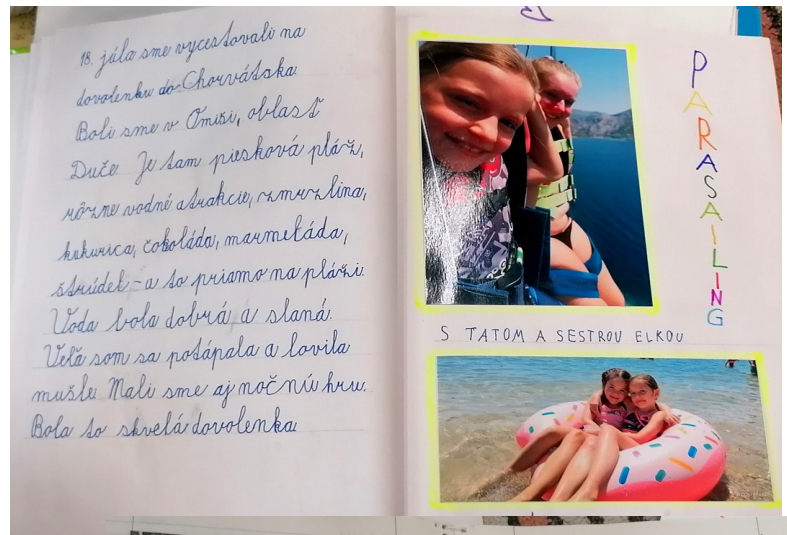 18. júla sme vycestovali na
dovolenku do Chorvátska.
Boli sme v Omiši, oblasť
Duče. Je tam piesková pláž,
rôzne vodné atrakcie, zmrzlina,
kukurica, čokoláda, marmeláda,
štrúdel - a to priamo na pláži.
Voda bola dobrá a slaná.
Veľa som sa potápala a lovila
mušle. Mali sme aj nočnú hru.
Bola to skvelá dovolenka.
PARASAILING
S TATOM A SESTROU ELKOU